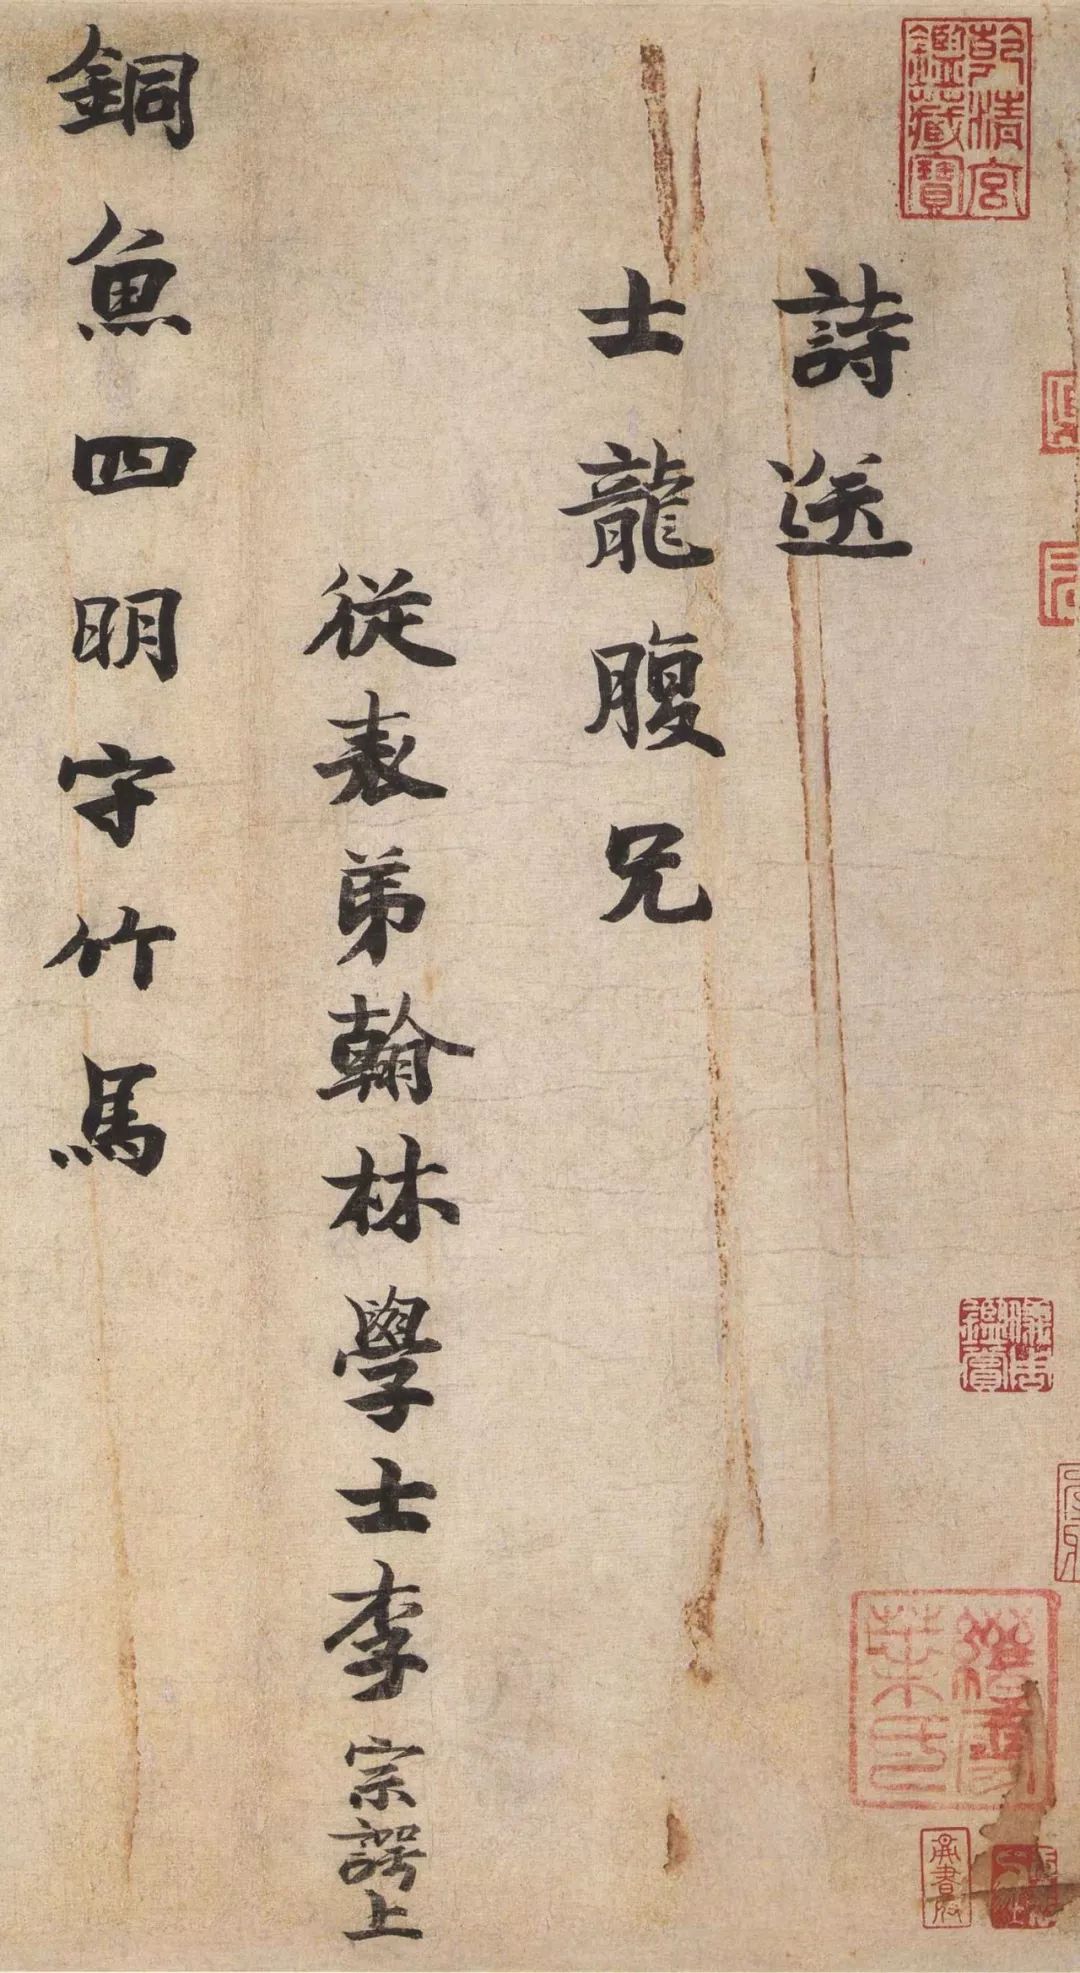 乾清宮鑑藏寶
詩送
士龍腹兄
従表弟翰林學士李宗諤上
銅魚四明守竹馬
儀周鑑賞